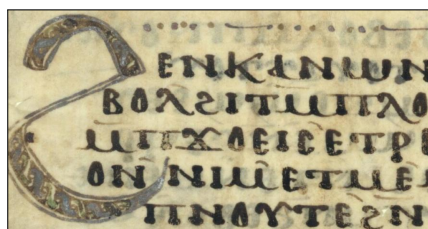 Ϩⲉⲛⲕⲁⲛⲱⲛ
ⲃⲟⲗϩⲓⲧⲙⲡⲗⲟ
ⲙⲡϫⲟⲉⲓⲥⲉⲧⲣⲉ
ⲟⲛⲛⲓⲙⲉⲧⲙⲉ
ⲡⲛⲟⲩⲧⲉϩⲛ